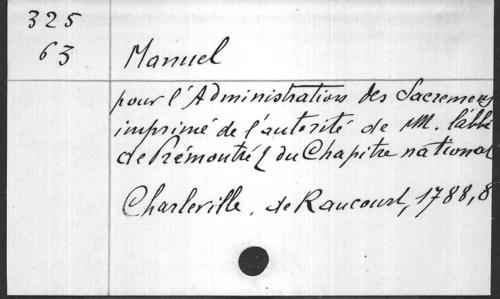 325
63 Manuel
pour l'Administration des Sacremens
imprimé de l'autorité de M. l'abbé
de Prémontré & du Chapitre national
Charleville, de Raucourt, 1788, 8